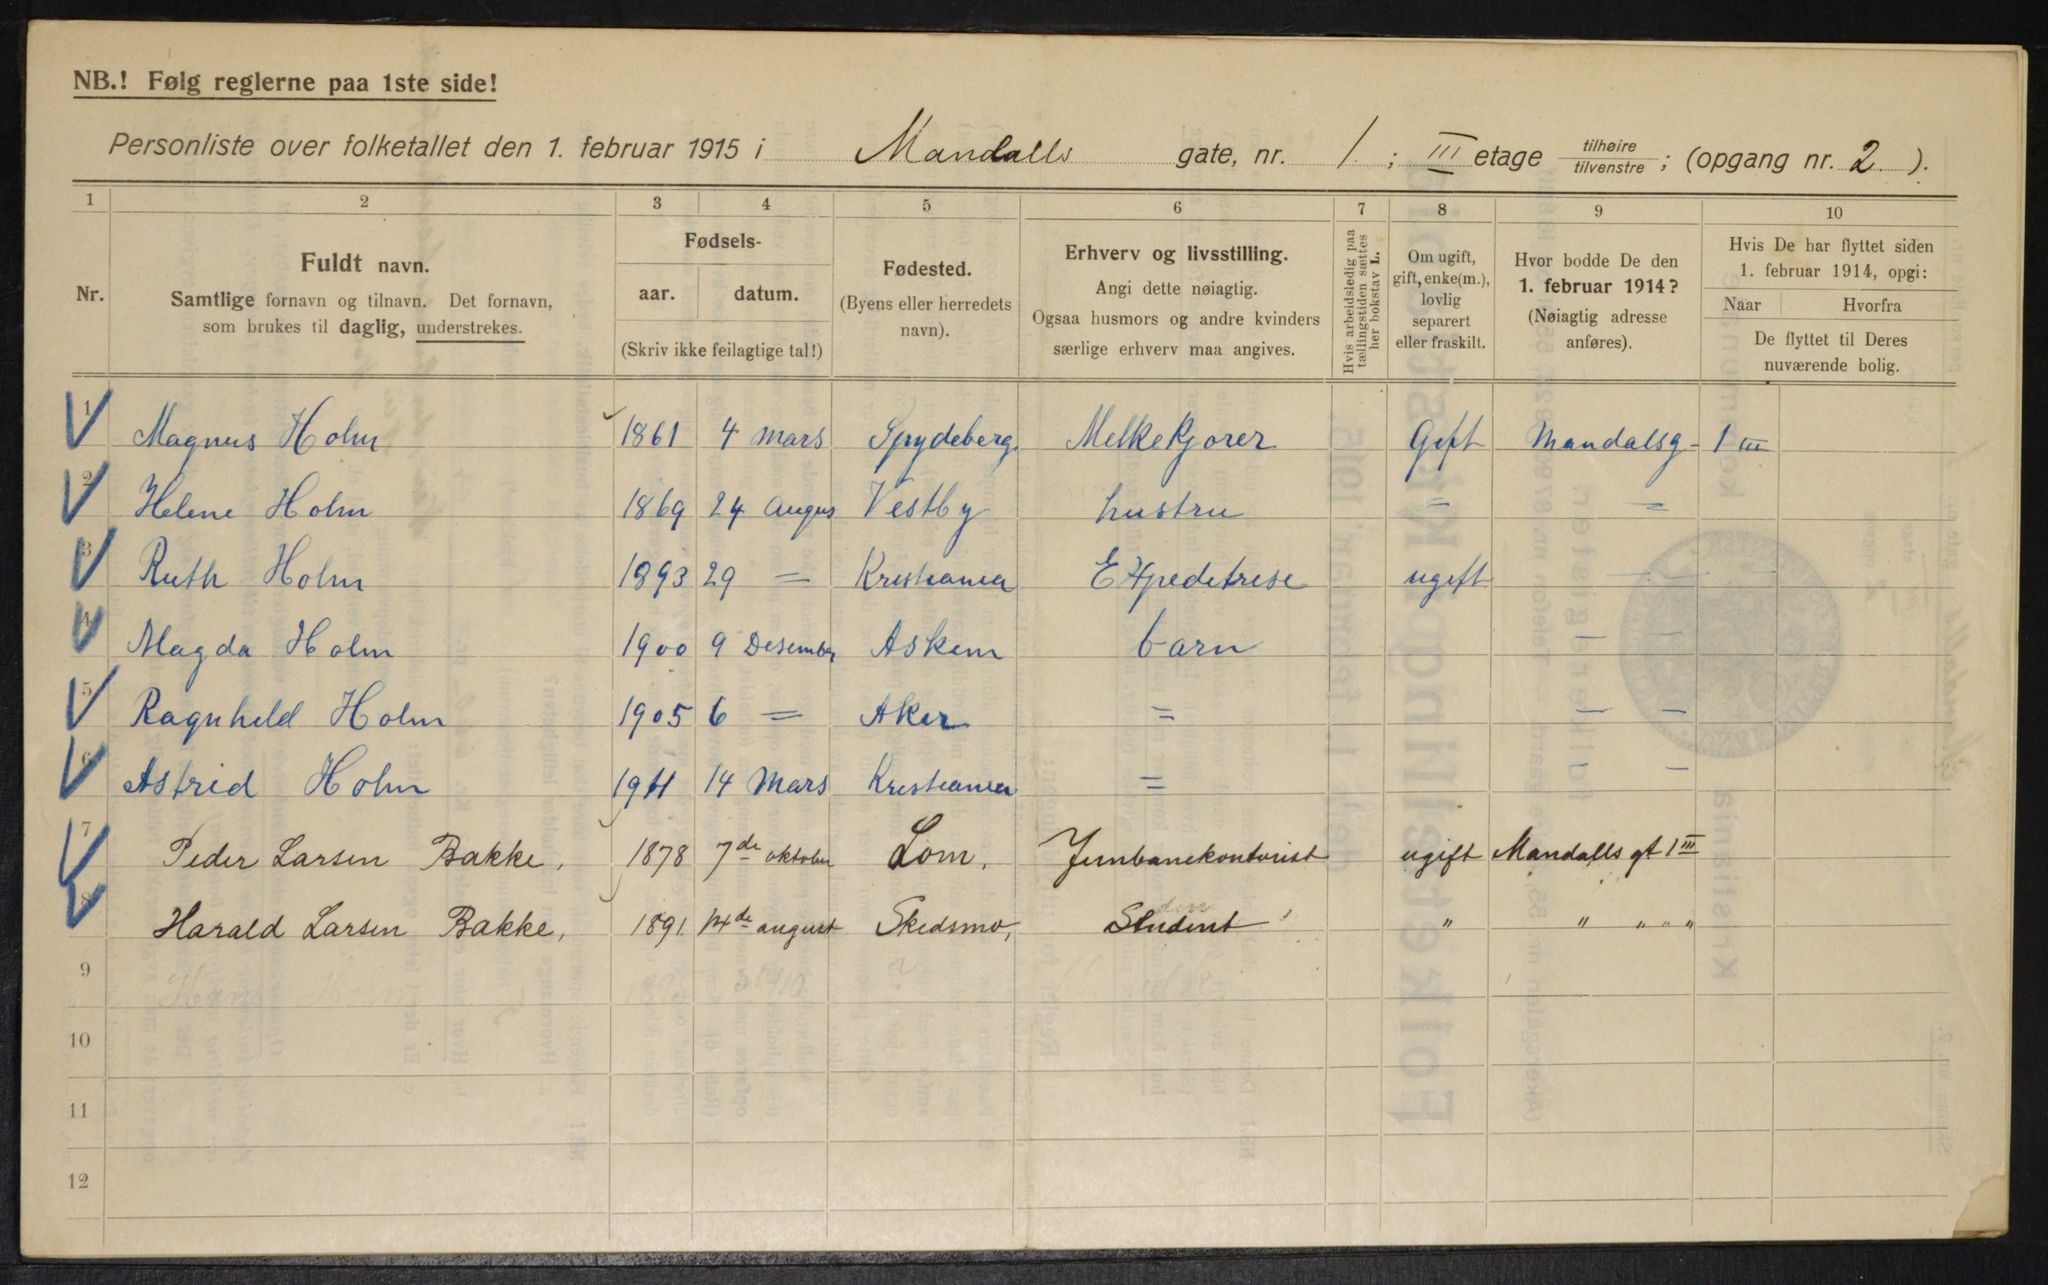 NB.! Følg reglerne paa 1ste side!
Personliste over folketallet den 1. februar 1915 i Mandalls gate, nr. 1. ; III etage tilhøire tilvenstre ; (opgang nr. 2. ).
1 2 3 4 5 6 7 8 9 10
Nr.
Fuldt navn.
Samtlige fornavn og tilnavn. Det fornavn,
som brukes til daglig, understrekes.
Fødsels-
aar. datum.
(Skriv ikke feilagtige tal!)
Fødested.
(Byens eller herredets
navn).
Erhverv og livsstilling.
Angi dette nøiagtig.
Ogsaa husmors og andre kvinders
særlige erhverv maa angives.
Hvis arbeidsledig paa
tællingstiden sættes
her bokstav L.
Om ugift,
gift, enke(m.),
lovlig
separert
eller fraskilt.
Hvor bodde De den
1. februar 1914?
(Nøiagtig adresse
anføres).
Hvis De har flyttet siden
1. februar 1914, opgi:
Naar Hvorfra
De flyttet til Deres
nuværende bolig.
1 Magnus Holm 1861 4 mars Spydeberg Melkekjører Gift Mandalsg- 1 III
2 Helene Holm 1869 24 augus Vestby hustru = =
3 Ruth Holm 1893 29 = Kristiania Expeditrise ugift — —
4 Magda Holm 1900 9 Desember Askem barn — —
5 Ragnhild Holm 1905 6 = Aker = — —
6 Astrid Holm 1911 14 Mars Kristiania = — —
7 Peder Larsen Bakke, 1878 7de oktober Lom, Jernbanekontorist ugift Mandalls gt 1 III
8 Harald Larsen Bakke, 1891 14de august Skedsmo, Student " " " " "
9 Hans Holm
10
11
12